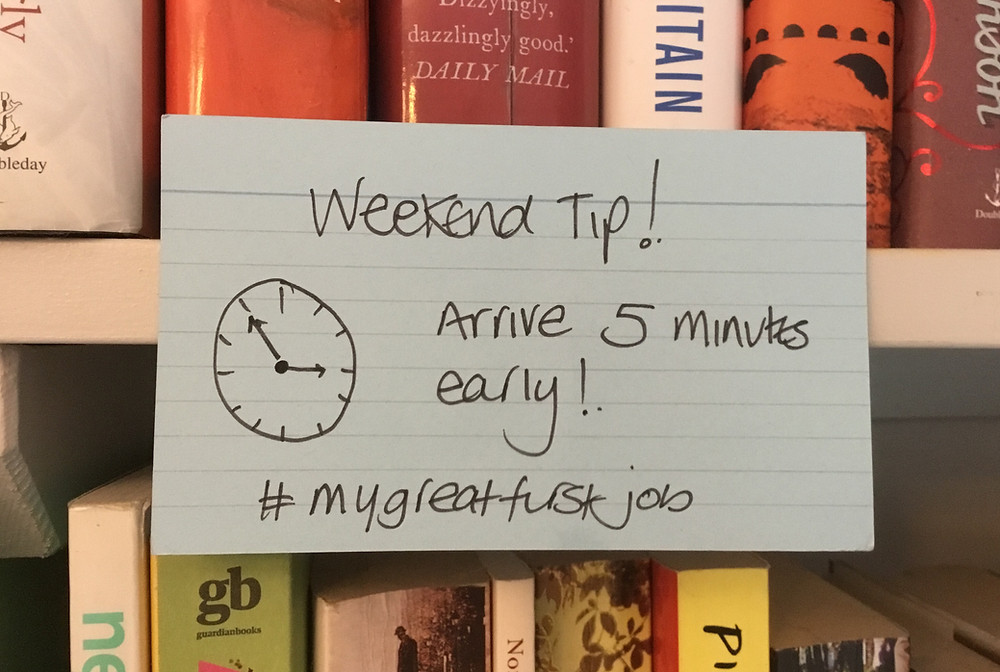 Dizzyingly,
dazzlingly good.'
DAILY MAIL
ITAIN
bleday
Weekend Tip!
Arrive 5 minutes
early!
#mygreatfirstjob
gb
guardianbooks
ne
No